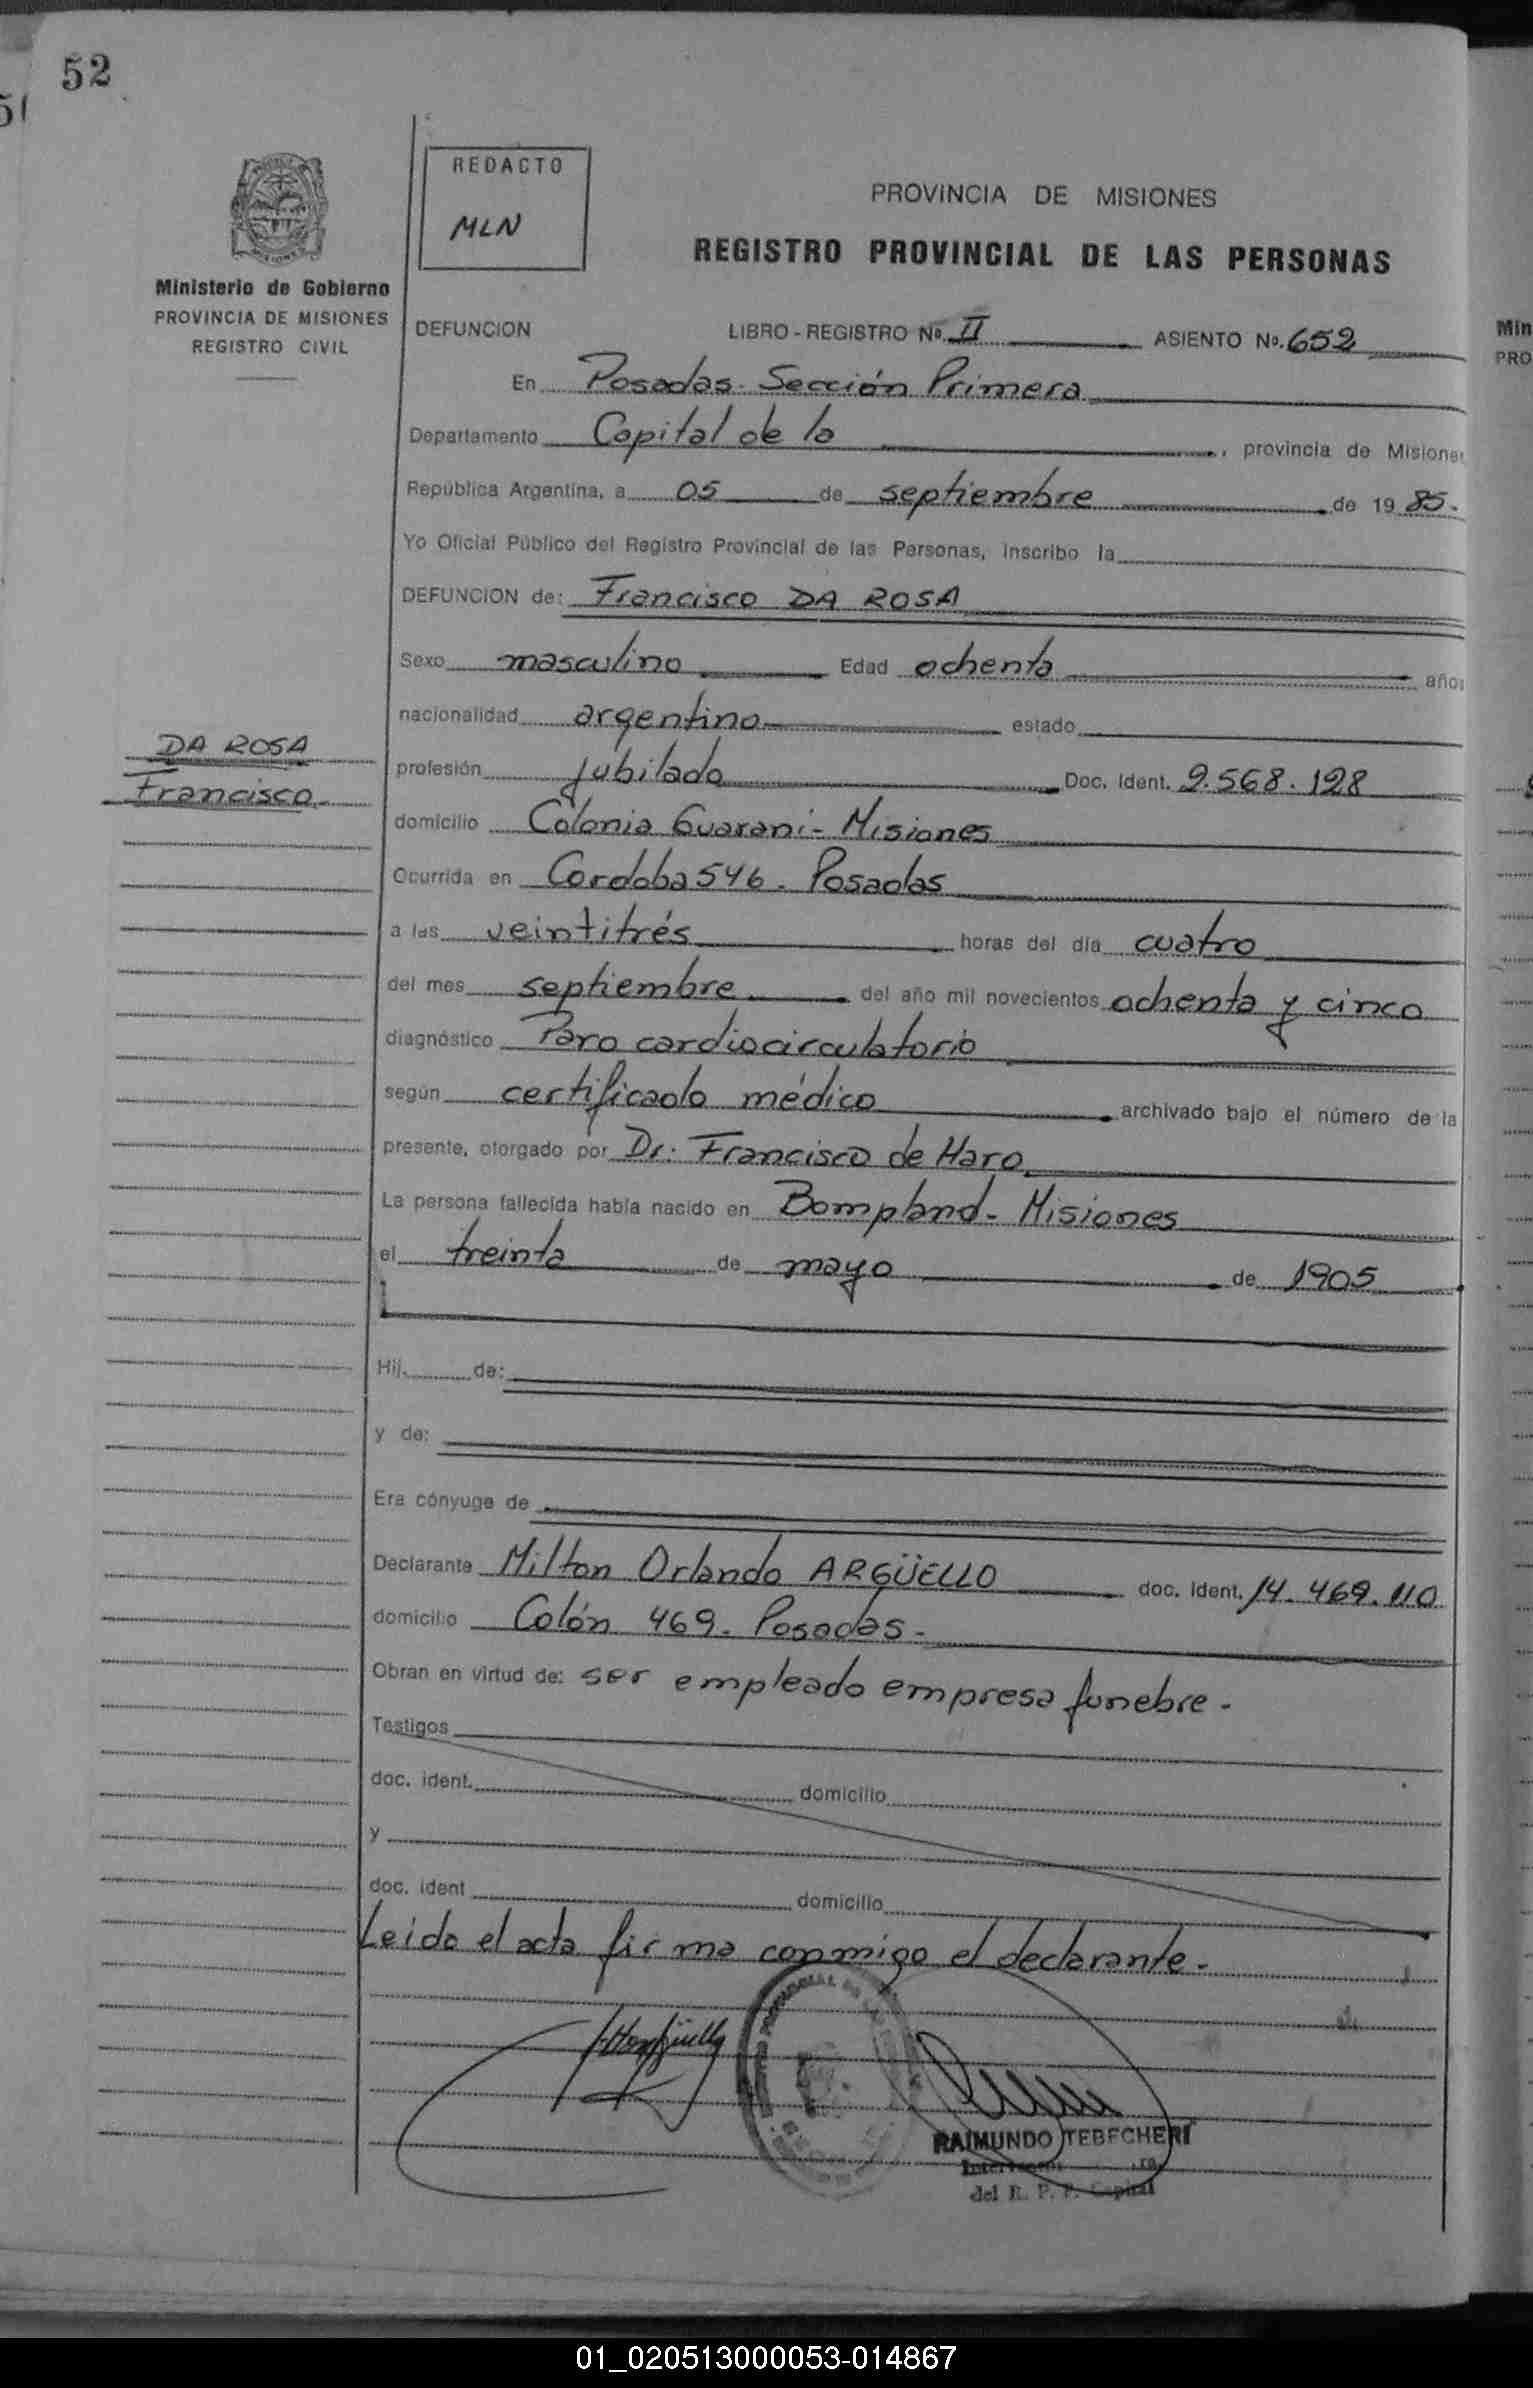 52
REDACTO
MLN
Ministerio de Gobierno
PROVINCIA DE MISIONES
REGISTRO CIVIL
PROVINCIA DE MISIONES
REGISTRO PROVINCIAL DE LAS PERSONAS
DEFUNCION LIBRO-REGISTRO Nº. II ASIENTO Nº. 652
En Posadas. Sección Primera
Departamento Capital de la , provincia de Misiones
República Argentina, a 05 de septiembre de 1985.
Yo Oficial Público del Registro Provincial de las Personas, inscribo la
DEFUNCION de: Francisco DA ROSA
Sexo masculino Edad ochenta años
nacionalidad argentino estado
DA ROSA
Francisco
profesión jubilado Doc. Ident. 2.568.128
domicilio Colonia Guarani - Misiones
Ocurrida en Cordoba 546. Posadas
a las veintitrés horas del día cuatro
del mes septiembre del año mil novecientos ochenta y cinco
diagnóstico Paro cardiocirculatorio
según certificado médico archivado bajo el número de la
presente, otorgado por Dr. Francisco de Haro
La persona fallecida había nacido en Bompland - Misiones
el treinta de mayo de 1905
Hij. de:
y de:
Era cónyuge de
Declarante Milton Orlando ARGÜELLO doc. ident. 14.469.110
domicilio Colón 469. Posadas.
Obran en virtud de: ser empleado empresa funebre.
Testigos
doc. ident. domicilio
y
doc. ident domicilio
Leido el acta firma conmigo el declarante.
RAIMUNDO TEBECHERI
del R. P. P. Capital
Min
PRO
01_020513000053-014867